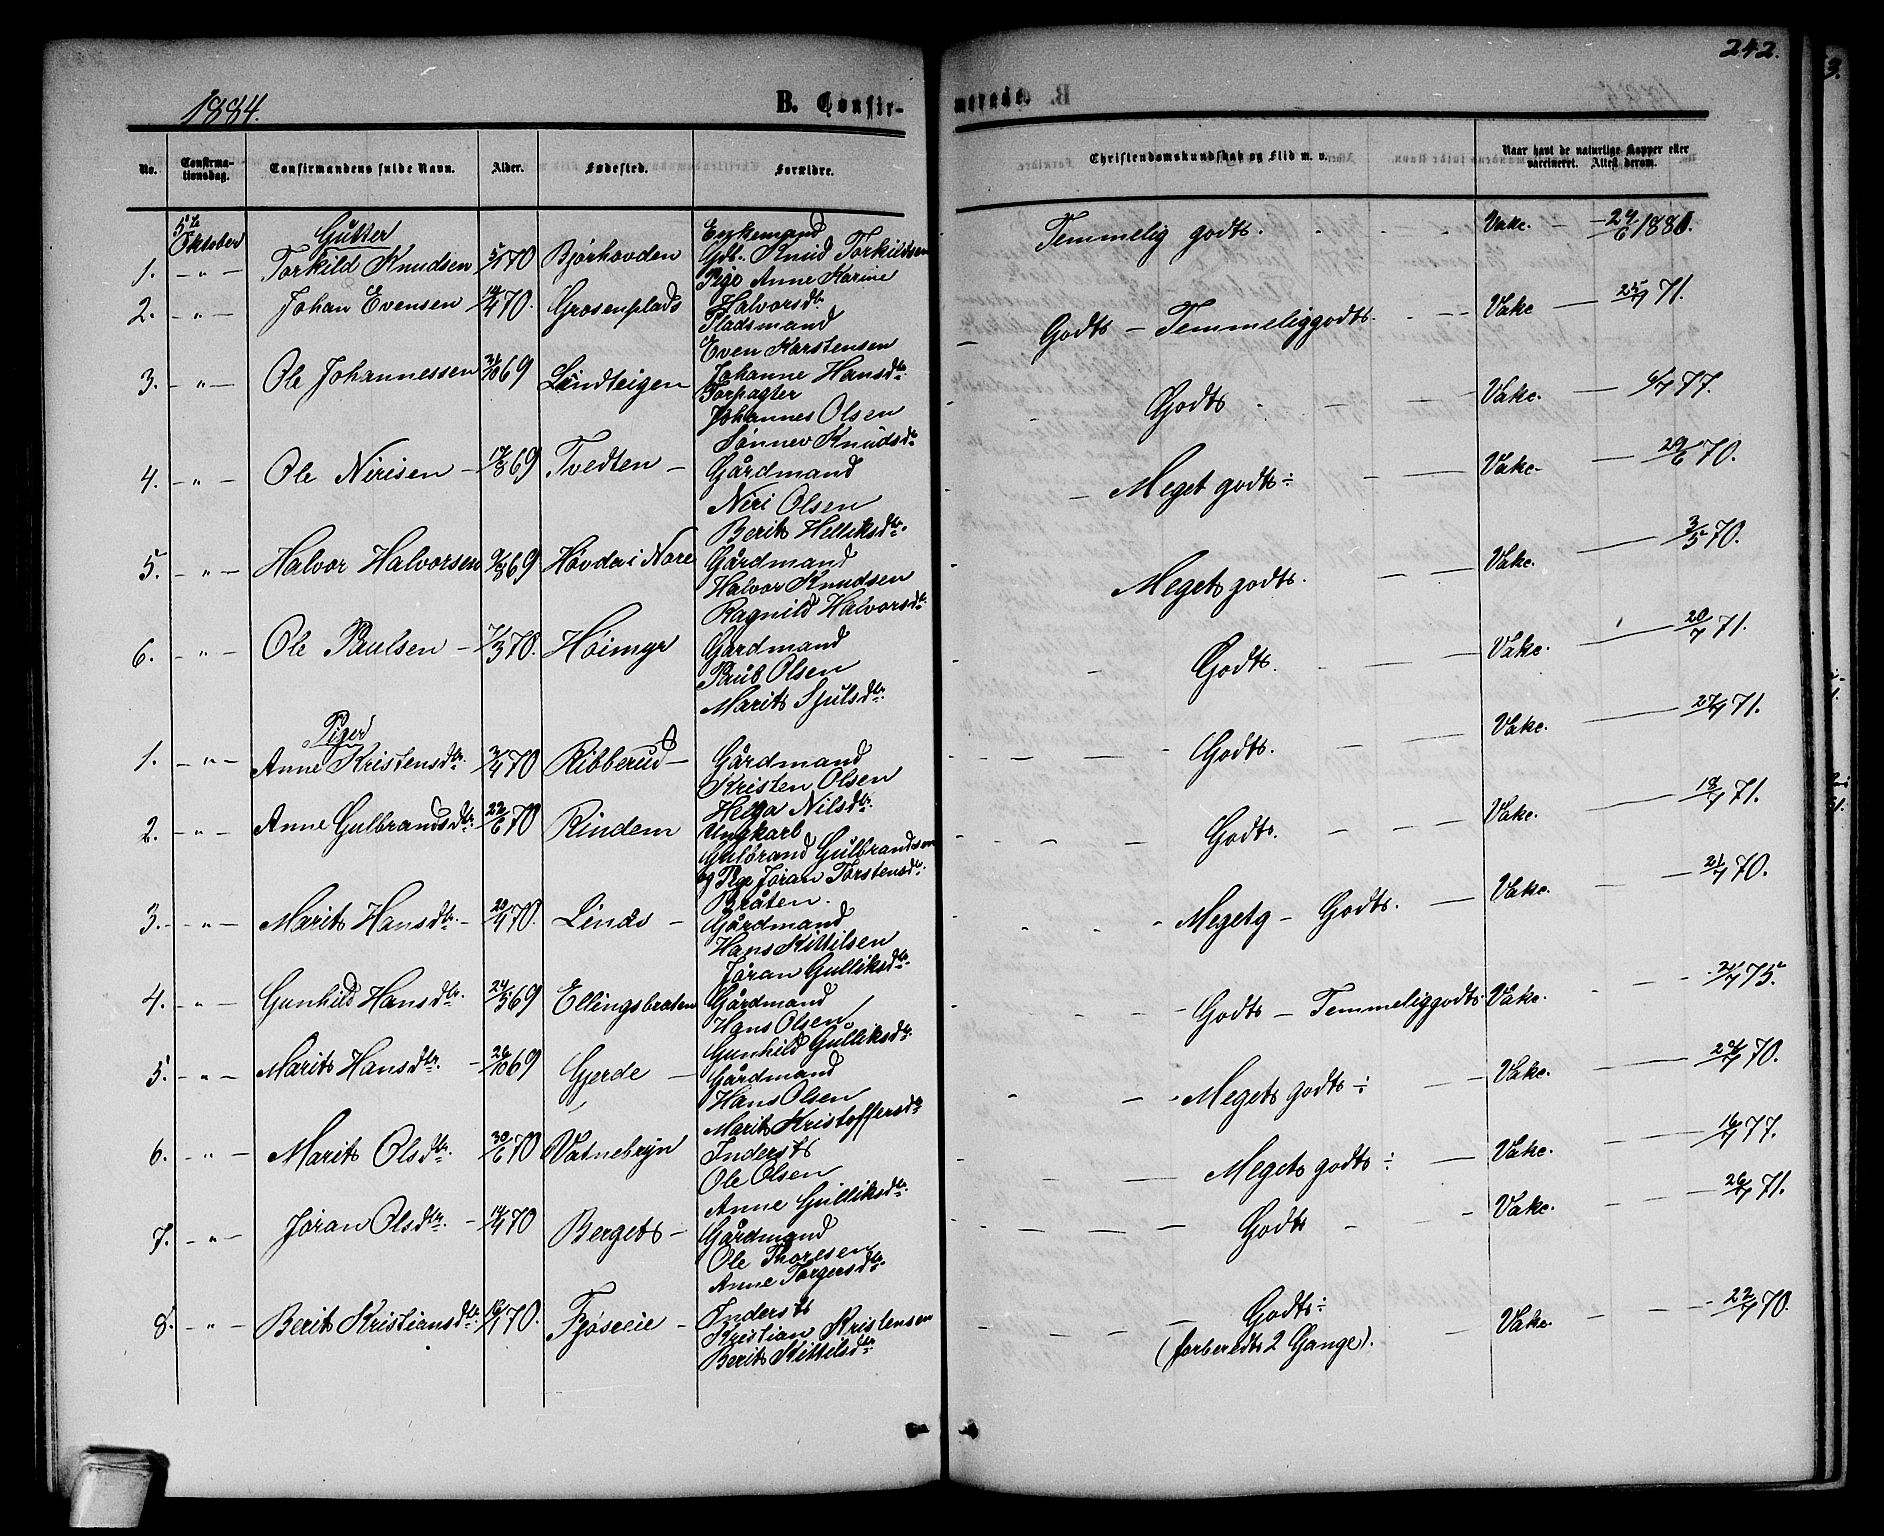 242.
1884.
B. Confir-
merede.
No.
Confirma-
tionsdag.
Confirmandens fulde Navn.
Alder.
Fødested.
Forældre.
Christendomskundskab og Flid m. v.
Naar havt de naturlige Kopper eller
vaccineret. Attest derom.
5te
Oktober
Gutter
1. - " - Torkild Knudsen 70 Bjørhovden
Enkemand
Gdb. Knud Torkildsen
Pige Anne Karine
Halvorsdtr.
Temmelig godt. Vakc. - 1880.
2. - " - Johan Evensen 70. Grosenplads
Pladsmand
Even Karstensen
Johanne Hansdtr.
Godt - Temmeliggodt. Vakc - 71.
3. - " - Ole Johannessen 31/10 69 Lindteigen
Forpagter
Johannes Olsen
Sønnev Knudsdtr
Godt Vakc. - 77.
4. - " - Ole Nirisen - 69 Tvedten -
Gårdmand
Niri Olsen
Berit Helliksdtr.
Meget godt ÷ Vakc. - 29/6 70.
5. - " - Halvor Halvorsen 69 Høvde i Nore
Gårdmand
Halvor Knudsen
Ragnild Halvorsdtr.
Meget godt. Vakc. - 3/5 70.
6. - " - Ole Paulsen - 7/3 70. Høimyr
Gårdmand
Paul Olsen
Marit Sjulsdtr.
Godt. Vakc. - 20/7 71.
Piger
1. - " - Anne Kristensdtr. 70 Ribberud -
Gårdmand
Kristen Olsen
Helga Nilsdtr.
Godt. Vakc. - 71.
2. - " - Anne Gulbrandsdtr. 22/6 70 Rindem
Ungkarl
Gulbrand Gulbrandsen
og Pige Jøran Torstensdtr.
Bråten.
Godt. Vakc. - 71.
3. - " - Marit Hansdtr. - 70. Lind -
Gårdmand
Hans Kittilsen
Jøran Gulliksdtr.
Megetg - Godt. Vakc. - 21/7 70.
4. - " - Gunhild Hansdtr. 69 Ellingsbraten
Gårdmand
Hans Olsen
Gunhild Gulliksdtr.
Godt - Temmeliggodt Vakc. - 75.
5. - " - Marit Hansdtr. - 26/10 69 Gjerde -
Gårdmand
Hans Olsen
Marit Kristoffersdtr
Meget godt ÷ Vakc. - 70.
6. - " - Marit Olsdtr. 30/6 70 Vatnebryn
Inderst
Ole Olsen
Anne Gulliksdtr.
Meget godt ÷ Vakc. - 77.
7. - " - Jøran Olsdtr. - 70 Berget -
Gårdmand
Ole Thoresen
Anne Torgersdtr.
Godt Vakc. - 71.
8. - " - Berit Kristiansdtr. 70. Fjøseie -
Inderst
Kristian Kristensen
Berit Kittilsdtr
Godt ÷
(forberedt 2 Gange). Vakc. - 22/7 70.